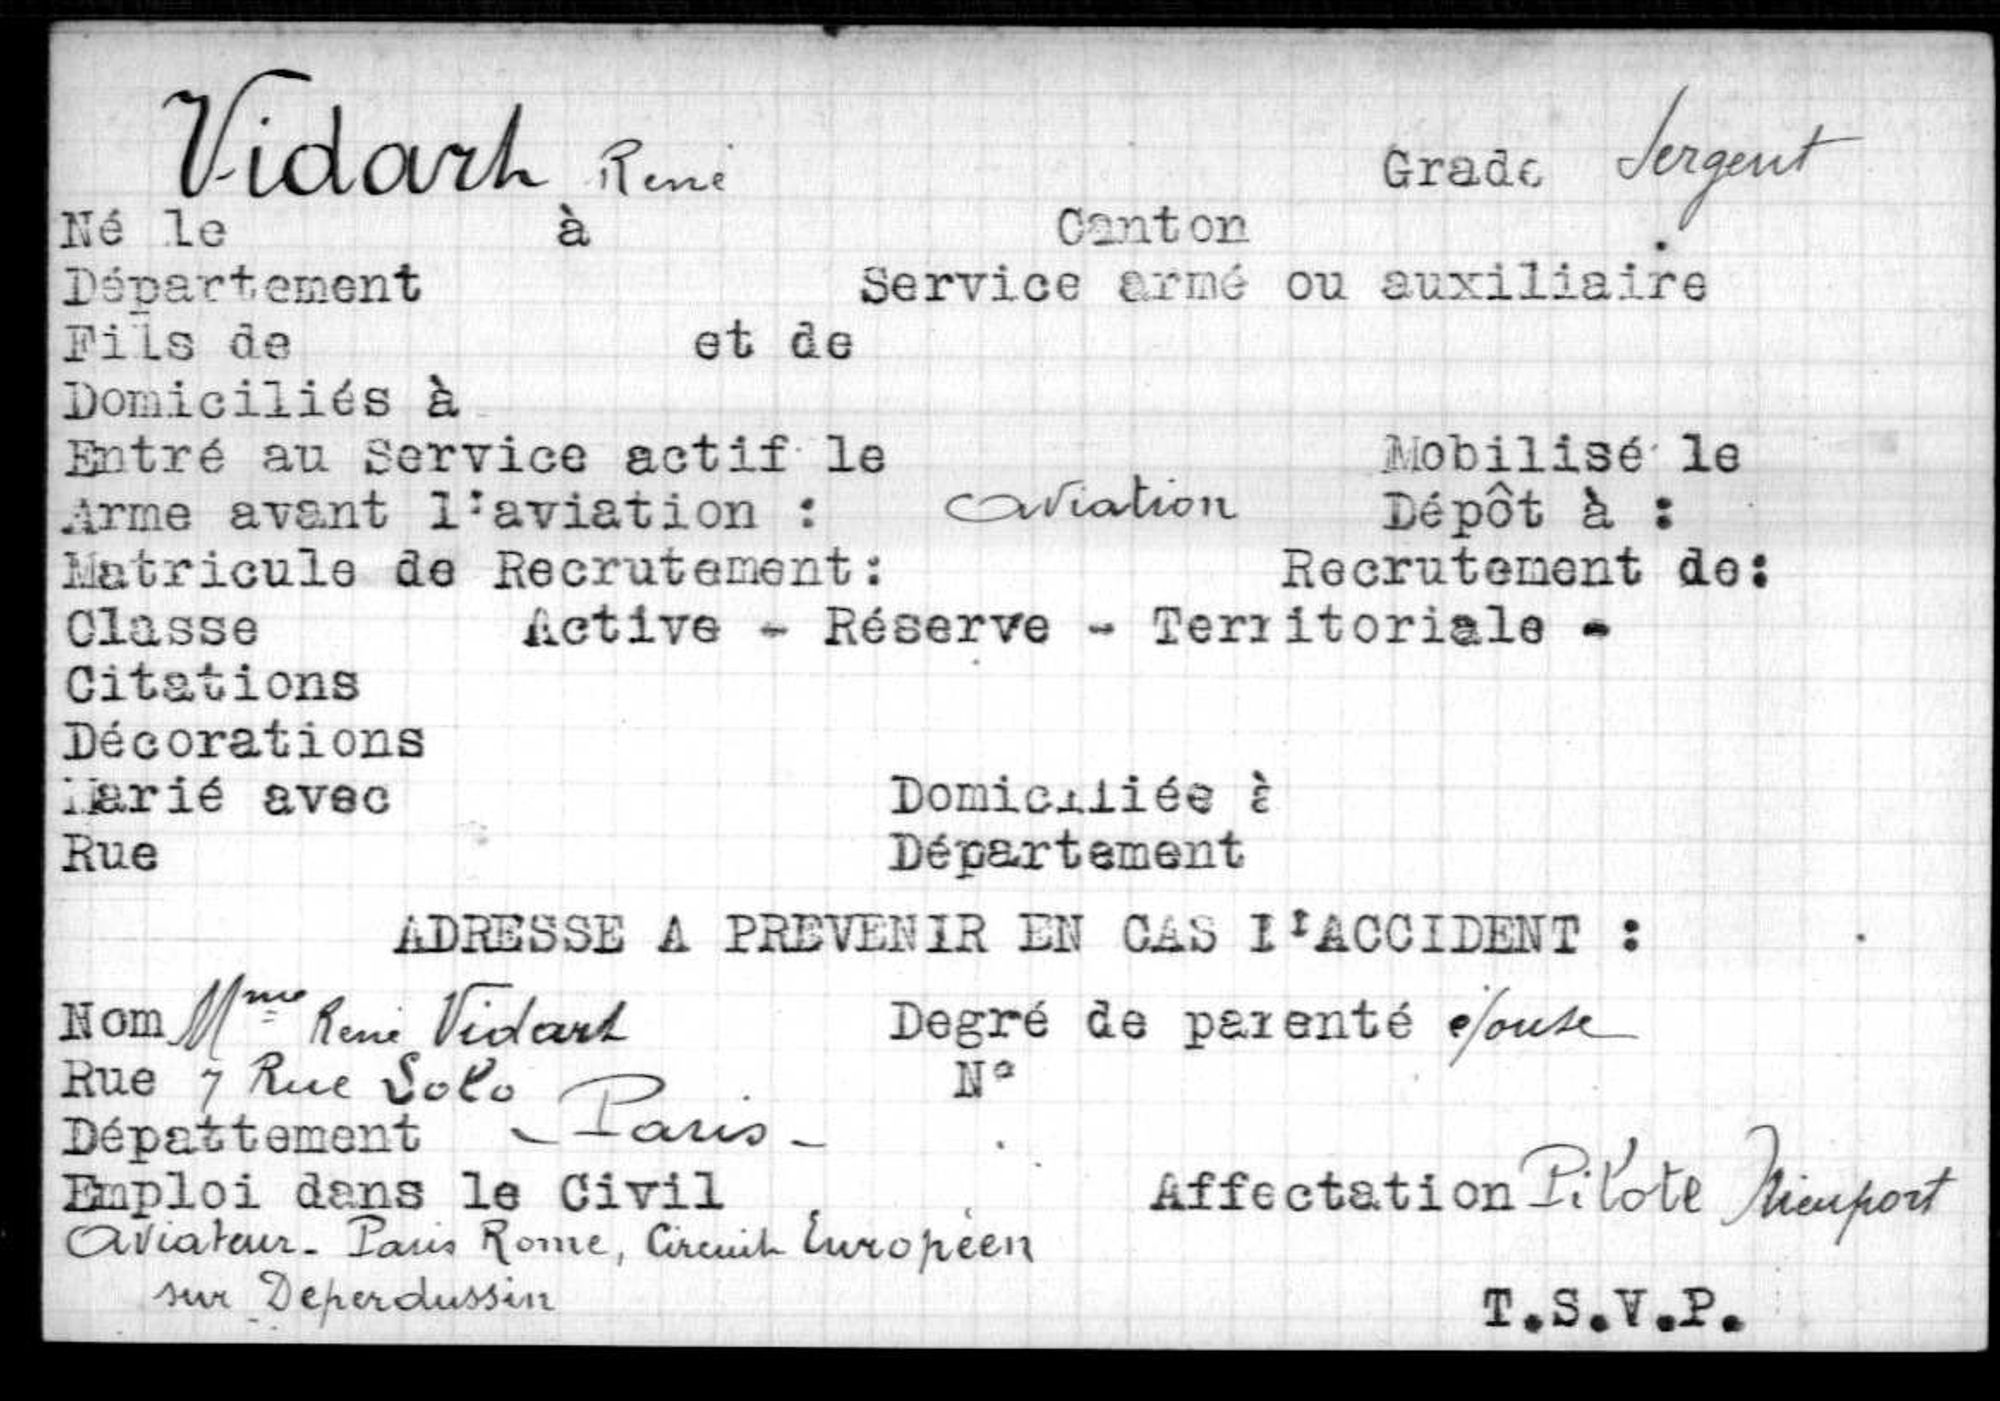 Vidart René Grade Sergent
Né le à Canton
Département Service armé ou auxiliaire
Fils de et de
Domiciliés à
Entré au Service actif le Mobilisé le
Arme avant l'aviation : aviation Dépôt à :
Matricule de Recrutement: Recrutement de:
Classe Active - Réserve - Territoriale -
Citations
Décorations
Marié avec Domiciliée à
Rue Département
ADRESSE A PREVENIR EN CAS D'ACCIDENT :
Nom Mme René Vidart Degré de parenté épouse
Rue 7 Rue Solo N°
Dépattement - Paris -
Emploi dans le Civil Affectation Pilote Nieuport
Aviateur - Paris Rome, Circuit Européen
sur Deperdussin
T.S.V.P.